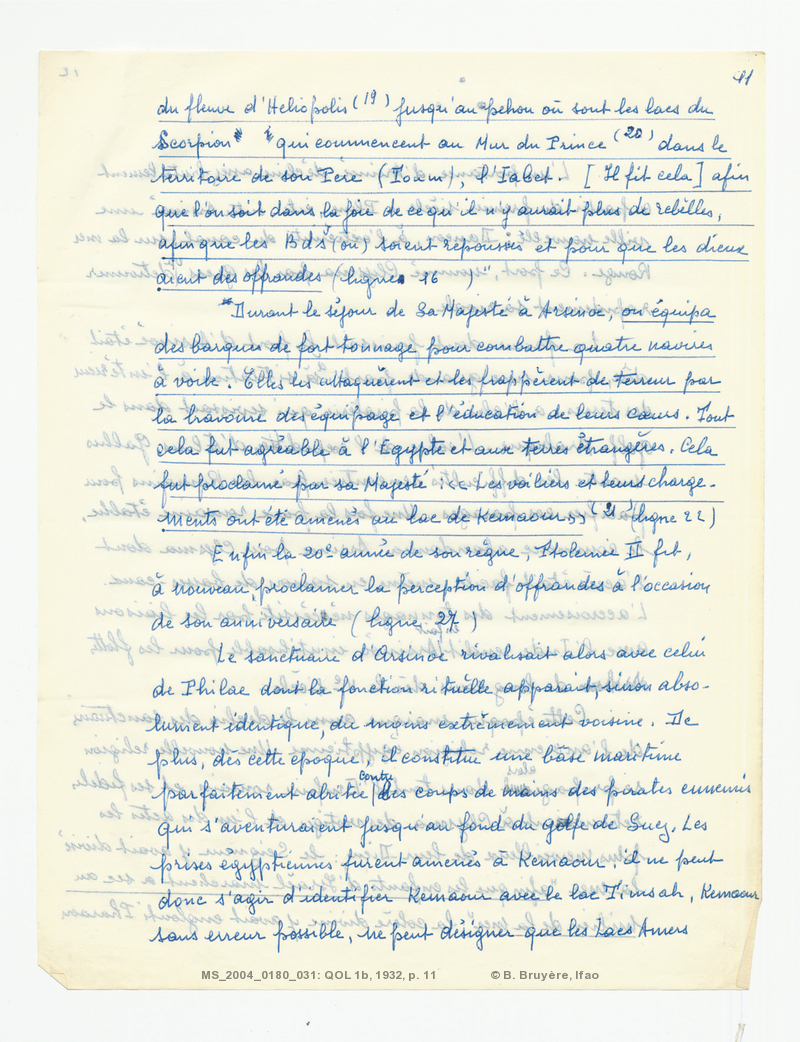 11
du fleuve d'Heliopolis (19) jusqu'au pehou où sont les lacs du
Scorpion qui commencent au Mur du Prince (20) dans le
territoire de son Père (Toum), l'Iabet. [Il fit cela] afin
que l'on soit dans la joie de ce qu'il n'y aurait plus de rebelles,
afin que les Bdš (ou) soient repoussés et pour que les dieux
aient des offrandes (ligne 16 )"
"Durant le séjour de Sa Majesté à Arsinoe, on équipa
des barques de fort tonnage pour combattre quatre navires
à voile. Elles les attaquèrent et les frappèrent de terreur par
la bravoure des équipage et l'éducation de leurs cœurs. Tout
cela fut agréable à l'Egypte et aux terres étrangères. Cela
fut proclamé par sa Majesté : << Les voiliers et leurs charge-
ments ont été amenés au lac de Kemaour >> (21) (ligne 22)
Enfin la 20e année de son règne, Ptolémée II fit,
à nouveau, proclamer la perception d'offrandes à l'occasion
de son anniversaire (ligne 27 )
Le sanctuaire d'Arsinoe rivalisait alors avec celui
de Philae dont la fonction rituelle apparait, sinon abso-
lument identique, du moins extrêmement voisine. De
plus, dès cette époque, il constitue une base maritime
parfaitement abritée contre les coups de mains des pirates ennemis
qui s'aventuraient jusqu'au fond du golfe de Suez. Les
prises égyptiennes furent amenés à Kemaour, il ne peut
donc s'agir d'identifier Kemaour avec le lac Timsah, Kemaour
sans erreur possible, ne peut désigner que les Lacs Amers
MS_2004_0180_031: QOL 1b, 1932, p. 11 © B. Bruyère, Ifao